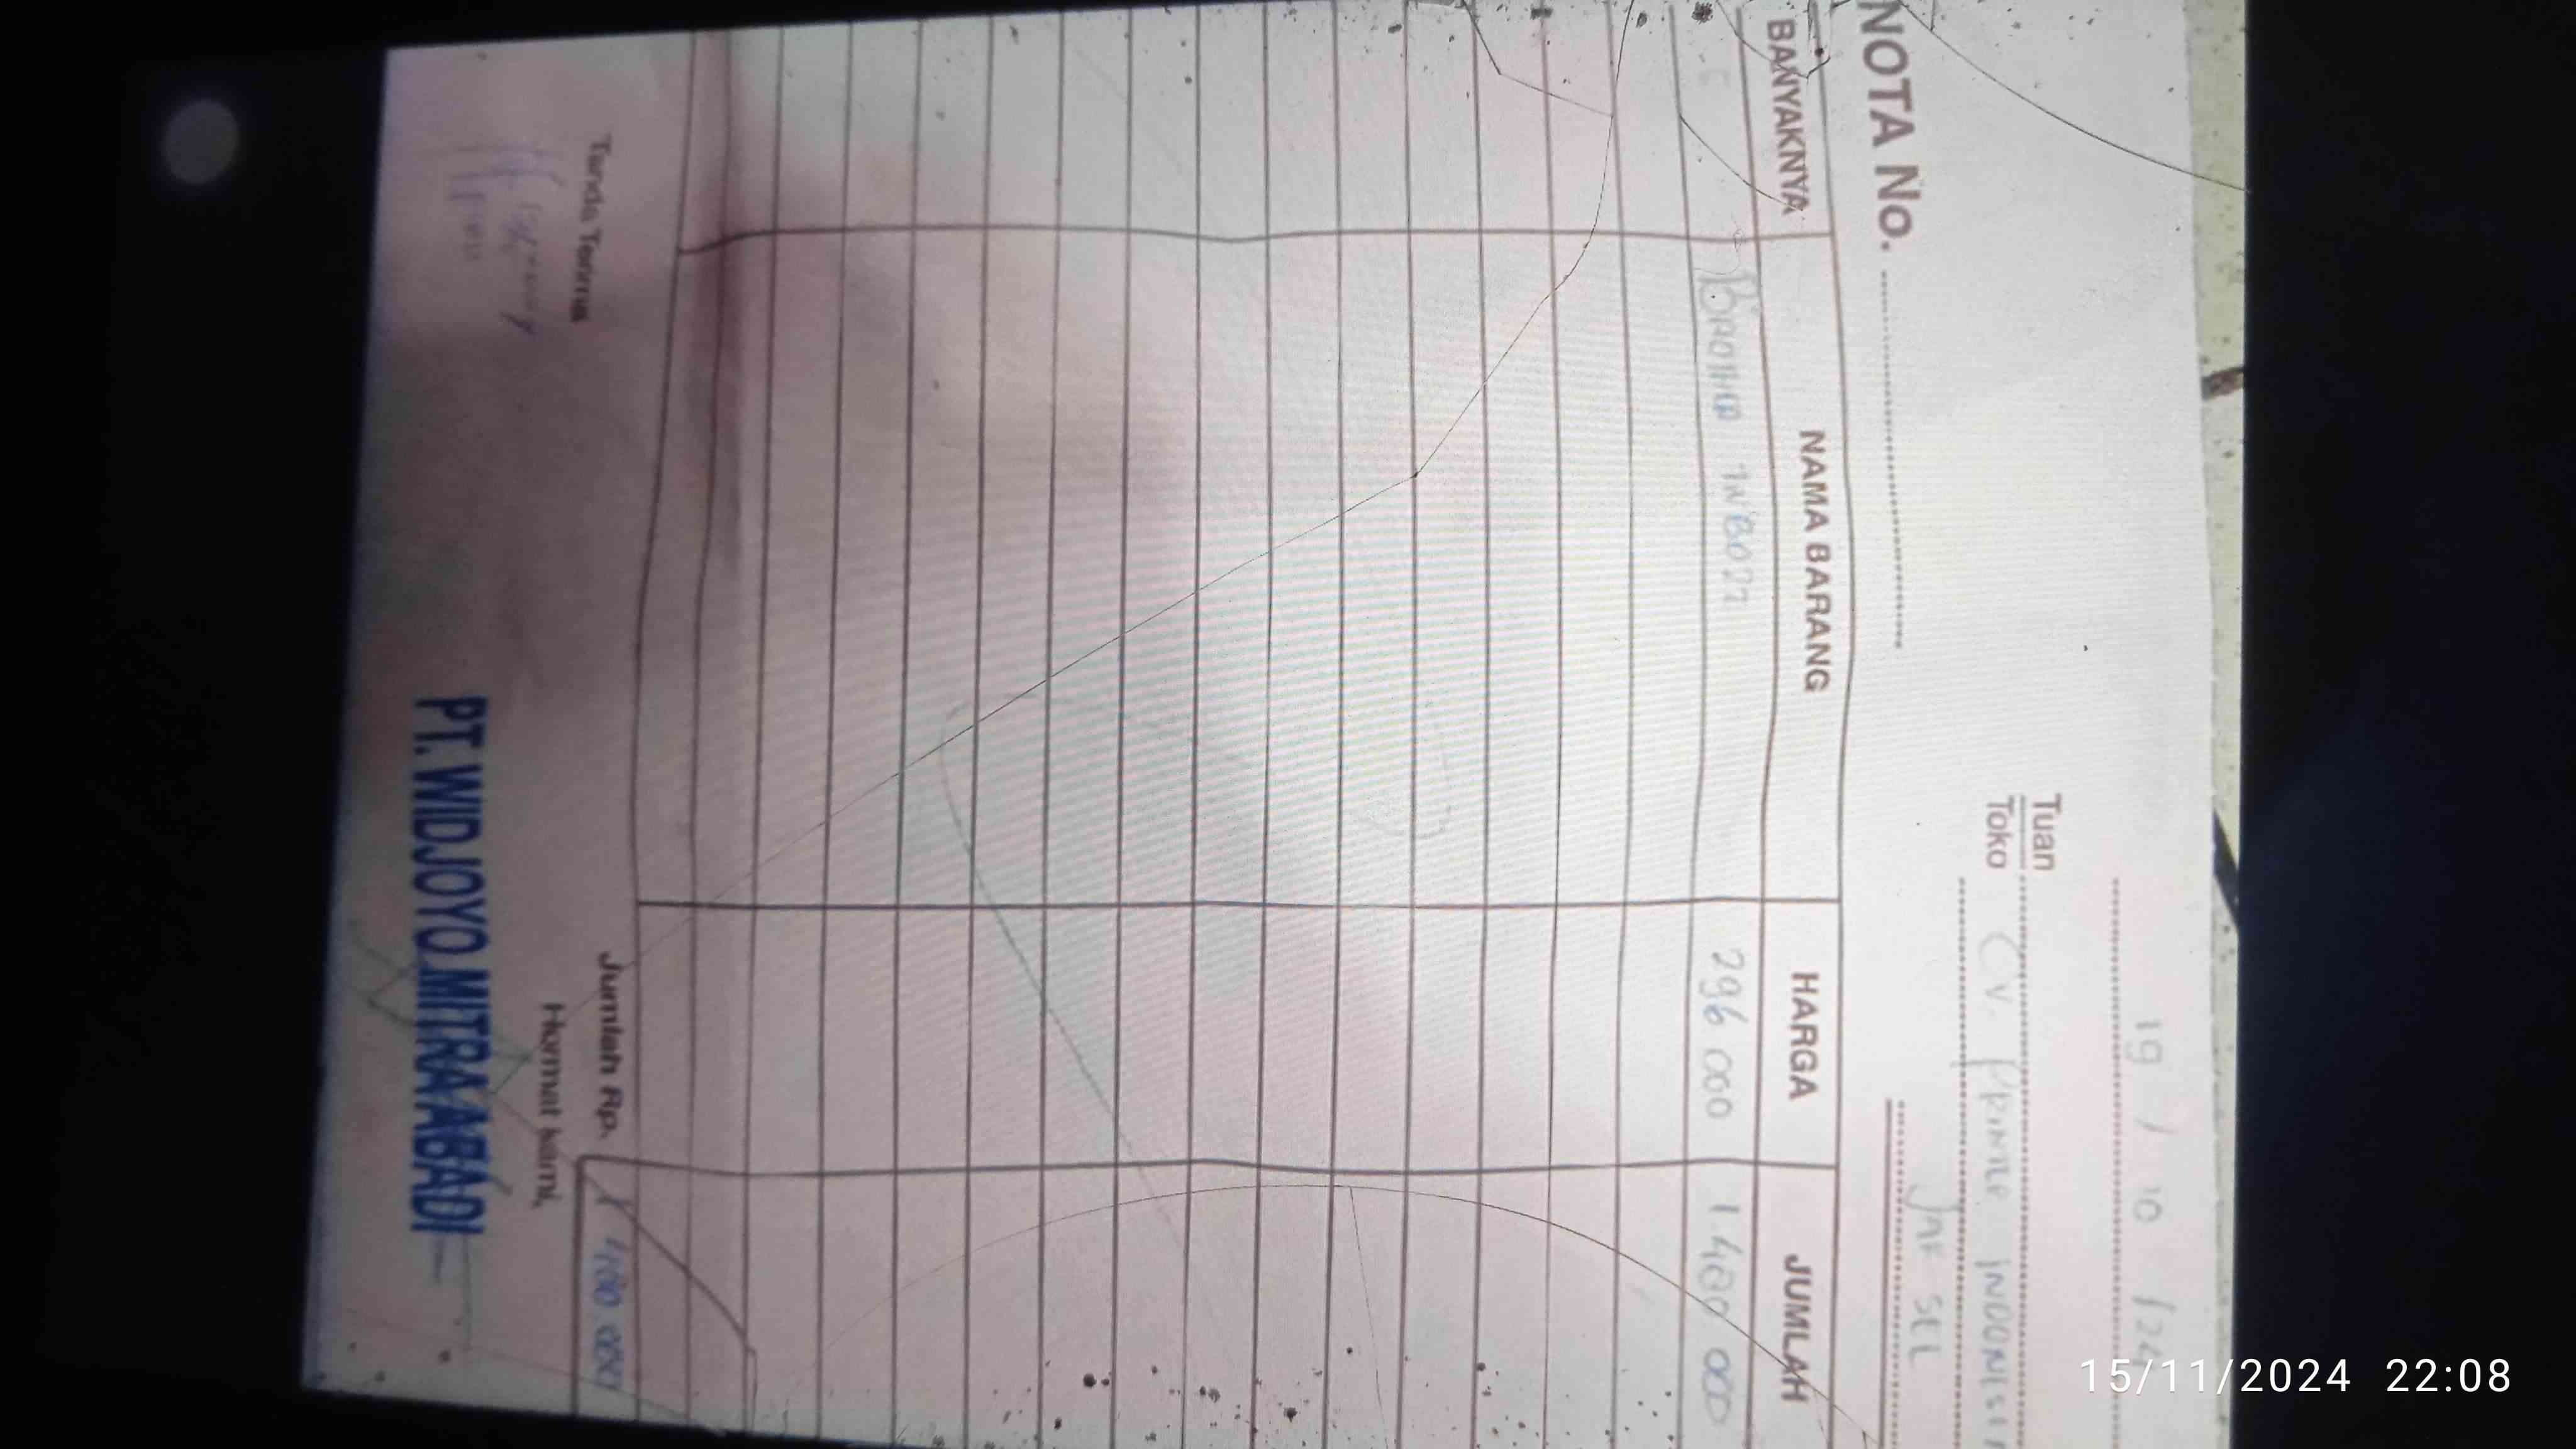 19 / 10 / 24
Tuan
Toko CV. PRIMER INDONESI
JAK SEL
NOTA No.
BANYAKNYA NAMA BARANG HARGA JUMLAH
296 000 1.480 000
Jumlah Rp. 480 000
Tanda Terima Hormat kami,
PT. WIDJOYO MITRA ABADI
15/11/2024 22:08